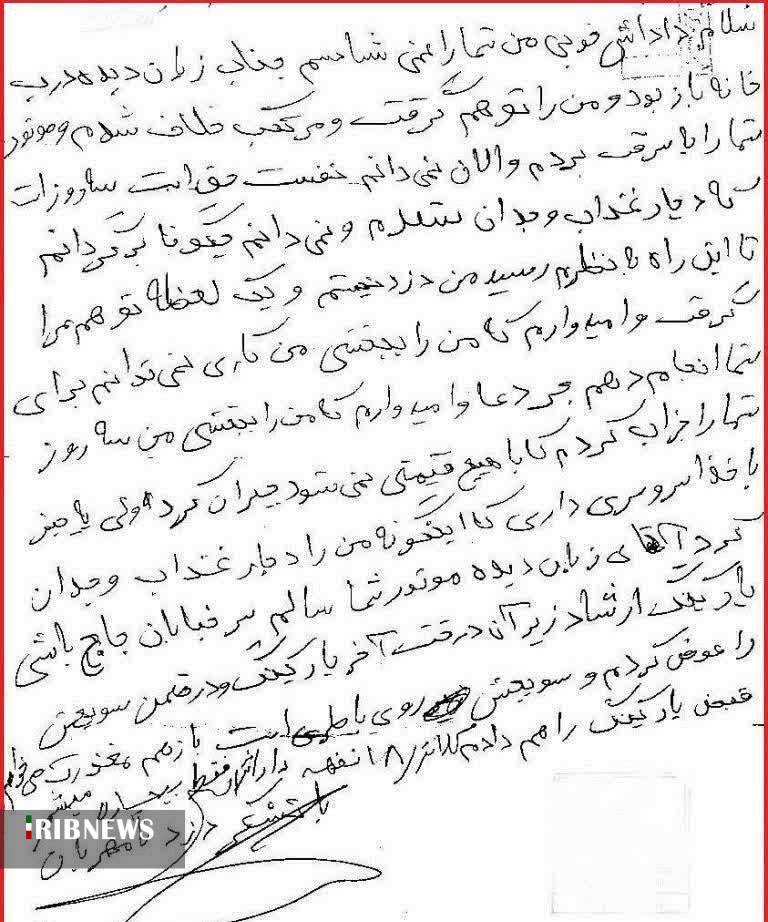 سلام داداش خوبی من شما را نمی شناسم جناب زیان دیده درب
خانه باز بود و من را توهم گرفت و مرتکب خلاف شدم و موتور
شما را با سرقت بردم والان نمی دانم سه روز است
که دچار غذاب وجدان شدم و نمی دانم چگونا برگردانم
تا این راه به نظرم رسید من دزد نیستم و یک لحظه توهم مرا
گرفت وامیدوارم که من را ببخشی من کاری نمی توانم برای
شما انجام دهم جز دعا وامیدوارم که من را ببخشی من سه روز
شما را خراب کردم که با هیچ قیمتی نمی شود جبران کرد ولی یه چیز
با خدا سر و سری داری که اینگونه من را دچار غذاب وجدان
کرد آقای زیان دیده موتور شما سالم سر خیابان باشی
پارکینگ ارشاد زیر آن درخت آخر پارکینگ و درضمن سویچش
را عوض کردم و سویچش روی باطری است بازهم معذرت می خوام
قبض پارکینگ را هم دادم کلانتری ۱۸ نفهه فقط بیچاره میشم
با تشکر دزد نامهربان
RIBNEWS